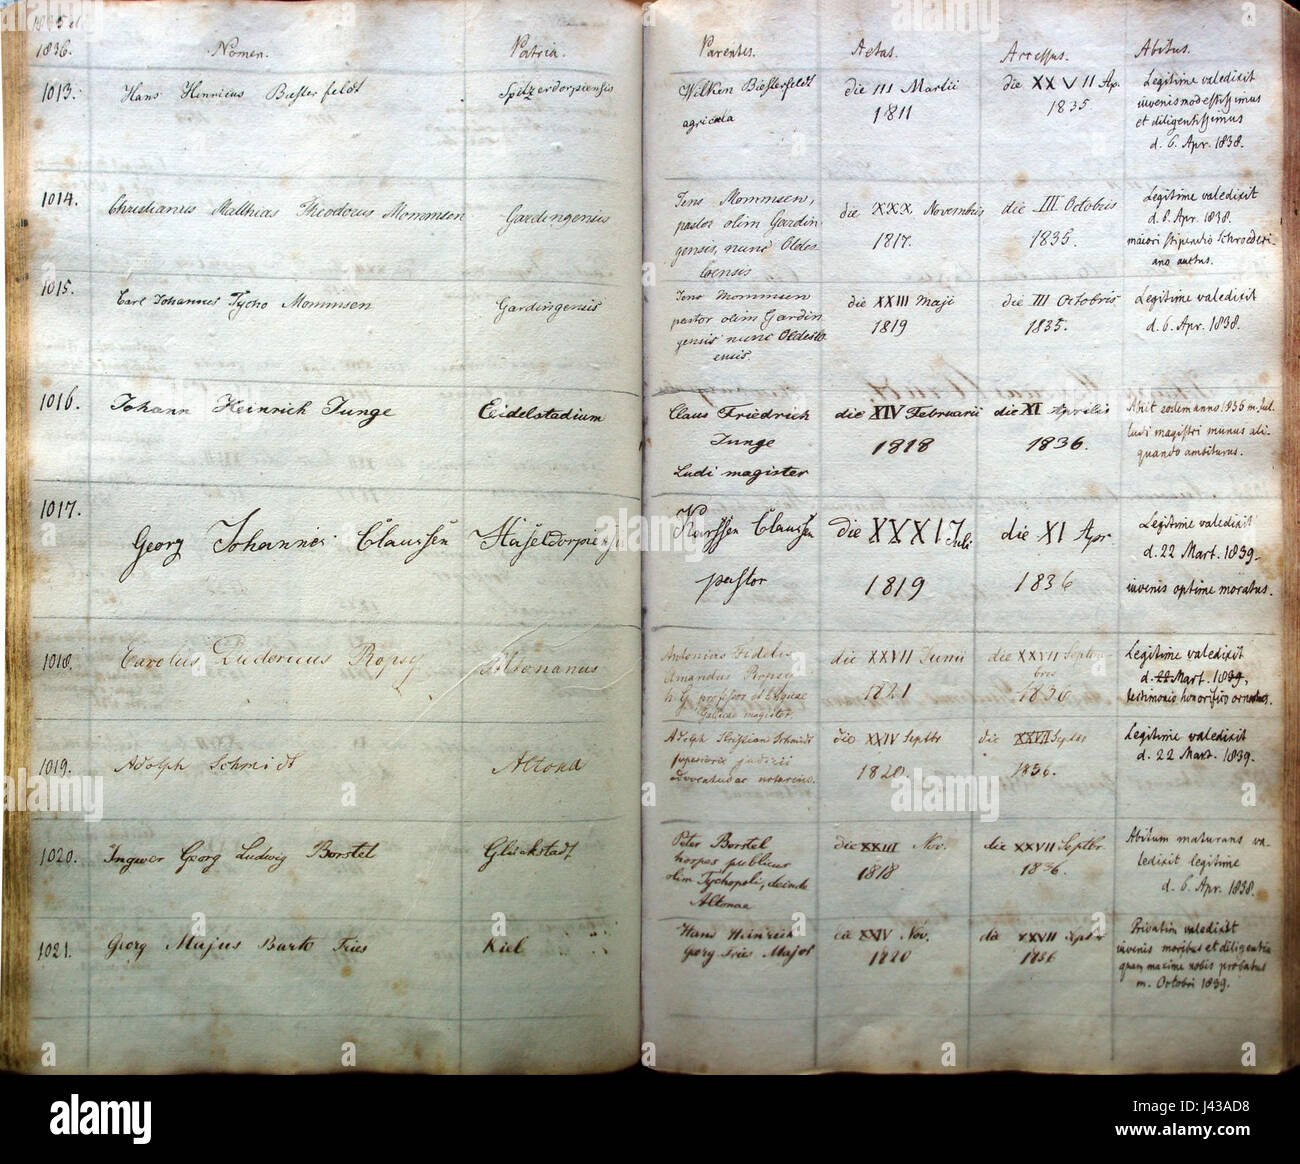 1835 et
1836. Nomen. Patria. Parentes. Aetas. Accessus. Abitus.
1013. Hans Hinricus Biesterfeldt Spitzerdorpiensis Wilken Biesterfeldt die III Martii die XXVII Ap. Legitime valedixit
agricola 1811 1835 iuvenis modestissimus
et diligentissimus
d. 6. Apr. 1838.
1014. Christianus Matthias Theodorus Mommsen Gardingensis Jens Mommsen, die XXX Novembris die III Octobris Legitime valedixit
pastor olim Gardin- 1817. 1835. d. 8. Apr. 1838.
gensis, nunc Oldes- maiori stipendio Schroederi-
loensis ano auctus.
1015. Carl Johannes Tycho Mommsen Gardingensis Jens Mommsen die XXIII Maji die III Octobris Legitime valedixit
pastor olim Gardin 1819 1835. d. 6. Apr. 1838.
gensis nunc Oldeslo
ensis.
1016. Johann Heinrich Junge Eidelstadium Claus Friedrich die XIV Februarii die XI Aprilis Abiit eodem anno 1836 m. Jul.
Junge 1818 1836. ludi magistri munus ali-
Ludi magister quando ambiturus.
1017. Georg Johannes Claussen Haseldorpiensis Karssen Claussen die XXXI Juli die XI Apr. Legitime valedixit
pastor 1819 1836 d. 22 Mart. 1839.
iuvenis optime moratus.
1018. Carolus Ludovicus Ropsy Altonanus Antonius Fidelis die XXVII Junii die XXVII Septem- Legitime valedixit
Amandus Ropsy 1821 bris d. 22 Mart. 1839,
h. G. professor et linguae 1836 testimonio honorifico ornatus.
Gallicae magister.
1019. Adolph Schmidt Altona Adolph Christian Schmidt die XXIV Septbr die XXVII Septbr Legitime valedixit
superioris judicii 1820. 1836. d. 22 Mart. 1839.
advocatus ac notarius.
1020. Ingwer Georg Ludwig Borstel Glückstadt Peter Borstel die XXIII Nov. die XXVII Septbr Abitum maturans va-
hospes publicus 1818 1836. ledixit legitime
olim Tychopoli, deinde d. 6. Apr. 1838.
Altonae
1021. Georg Majus Barto Fries Kiel Hans Heinrich die XXIV Nov. die XXVII Septbr Privatim valedixit
Georg Fries Major 1820 1836 iuvenis moribus et diligentia
quam maxime nobis probatus
m. Octobri 1839.
alamy
a
alamy
Image ID: J43AD8
www.alamy.com